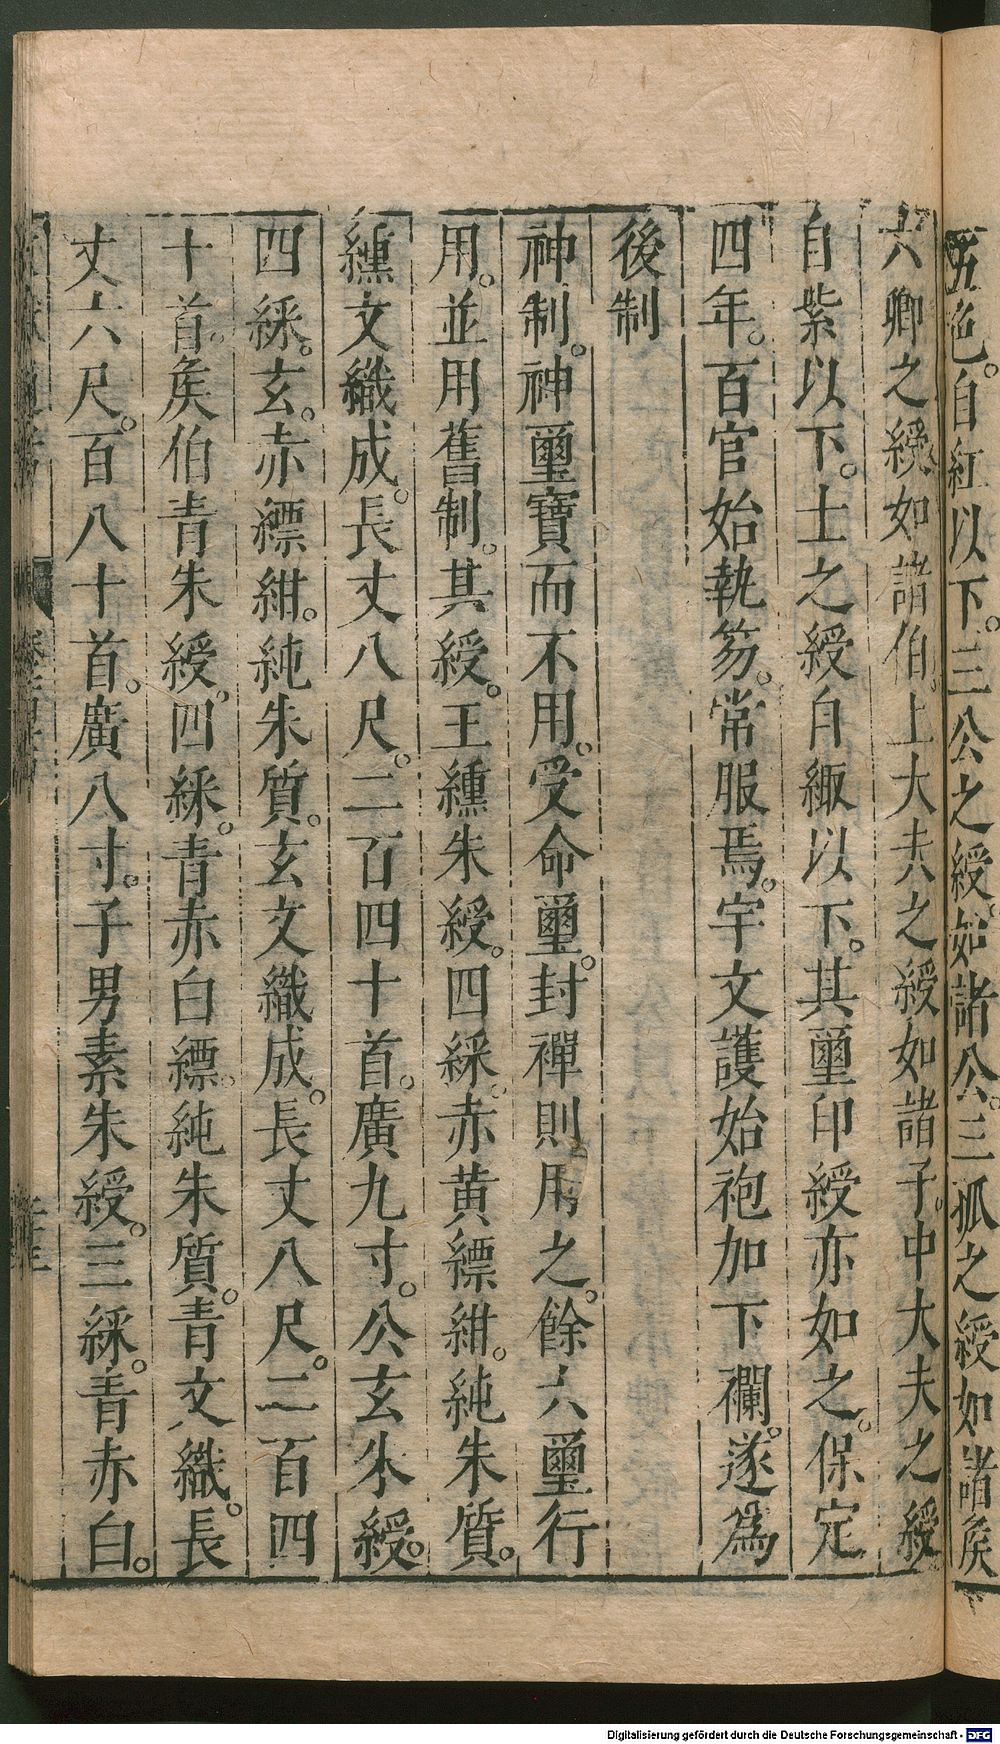 五色。自紅以下。三公之綬。如諸公。三孤之綬如諸侯
六卿之綬如諸伯。上大夫之綬如諸子。中大夫之綬
自紫以下。士之綬自緅以下。其璽印綬亦如之。保定
四年。百官始執笏。常服焉。宇文護始袍加下襴。遂爲
後制
神制。神璽寶而不用。受命璽。封禪則用之。餘六璽行
用。並用舊制。其綬。王纁朱綬。四綵。赤黃縹紺。純朱質。
纁文織成。長丈八尺。二百四十首。廣九寸。公玄朱綬。
四綵。玄。赤縹紺。純朱質。玄文織成。長丈八尺。二百四
十首。矦伯青朱綬。四綵。青赤白縹。純朱質。青文織。長
丈六尺。百八十首。廣八寸。子男素朱綬。三綵。青赤白。
Digitalisierung gefördert durch die Deutsche Forschungsgemeinschaft - DFG